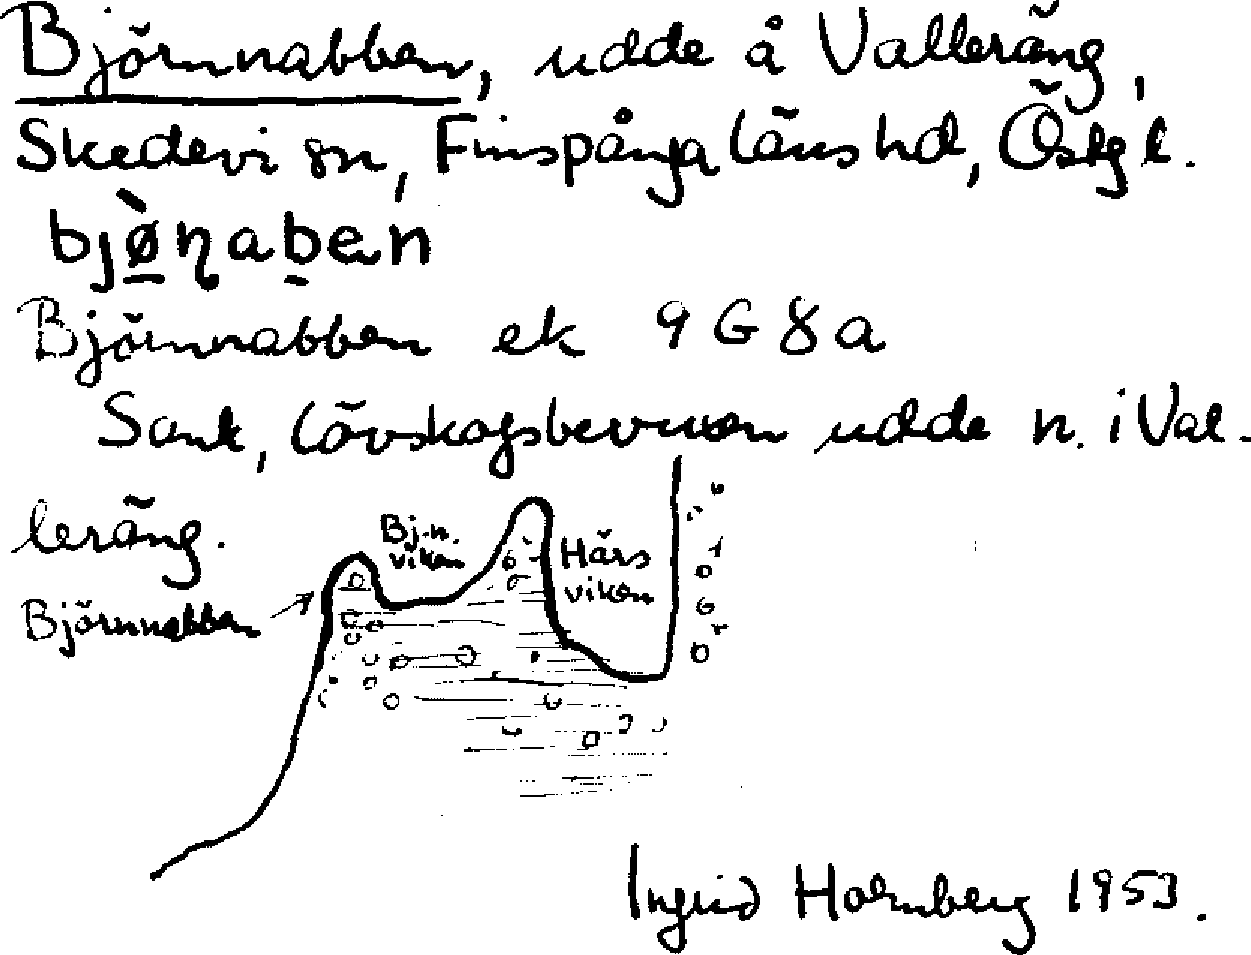 Björnnabben, udde å Valleräng,
Skedevi sn, Finspånga läns hd, Östg l.
bjø̀ɳaben
Björnnabben ek 9 G 8 a
Sank, lövskogsbevuxen udde n. i Val-
leräng.
Bj.n.
viken
Härs
viken
Björnnabben
Ingrid Holmberg 1953.